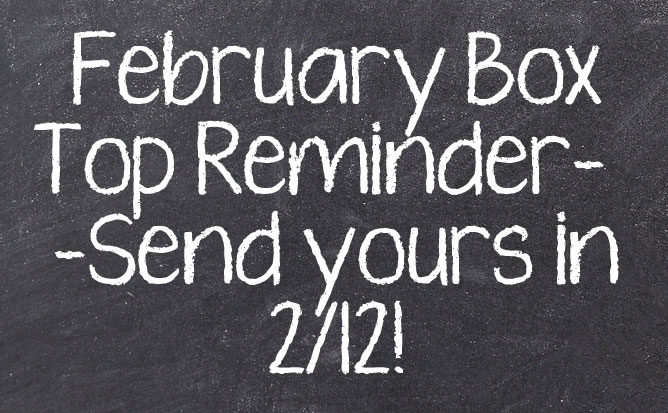 February Box
Top Reminder-
-Send yours in
2/12!